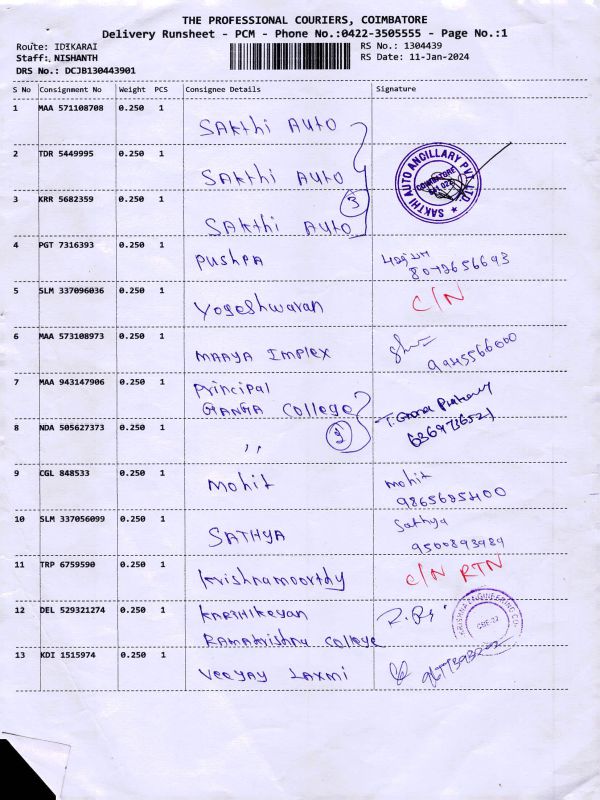 THE PROFESSIONAL COURIERS, COIMBATORE
Delivery Runsheet - PCM - Phone No.:0422-3505555 - Page No.:1
Route: IDIKARAI
RS No.: 1304439
Staff: NISHANTH
RS Date: 11-Jan-2024
DRS No.: DCJB130443901
S No Consignment No Weight PCS Consignee Details Signature
1 MAA 571108708 0.250 1
SAkthi AUTO
2 TDR 5449995 0.250 1
SAkthi AUTO
SAKTHI AUTO ANCILLARY PVT. LTD.
COIMBATORE
3 KRR 5682359 0.250 1
3
SAkthi AUTO
4 PGT 7316393 0.250 1
PUShPA
5 SLM 337096036 0.250 1
Yogeshwaran C/N
6 MAA 573108973 0.250 1
MAAYA IMPlEX
9945566000
7 MAA 943147906 0.250 1
Principal
GANGA College
8 NDA 505627373 0.250 1
,,
9 CGL 848533 0.250 1
Mohit mohit
10 SLM 337056099 0.250 1
SATHYA Sathya
9500893989
11 TRP 6759590 0.250 1
Krishnamoorthy C/N RTN
12 DEL 529321274 0.250 1
KARthikeyan
RAMAkrishna College
13 KDI 1515974 0.250 1
Veejay LAxmi